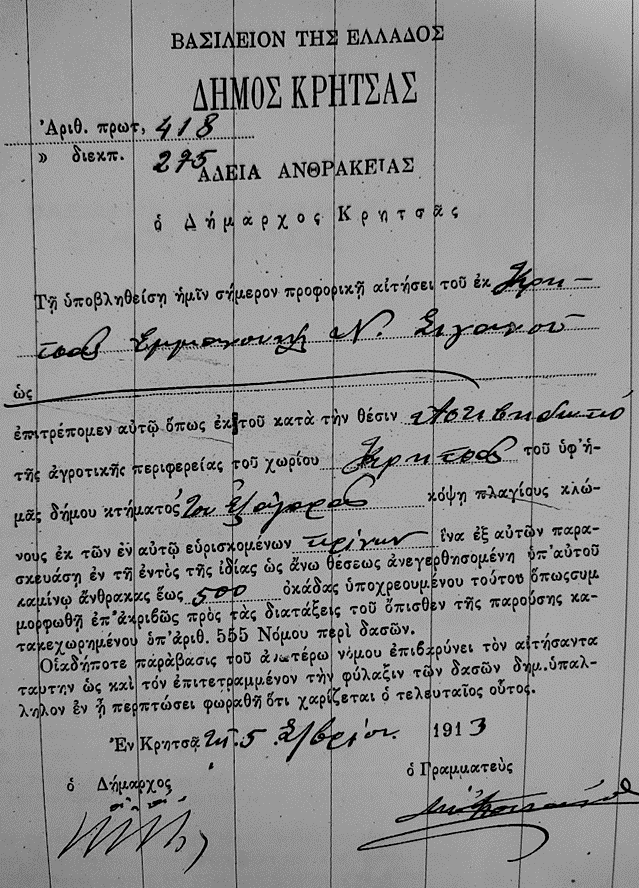 ΒΑΣΙΛΕΙΟΝ ΤΗΣ ΕΛΛΑΔΟΣ
ΔΗΜΟΣ ΚΡΗΤΣΑΣ
Ἀριθ. πρωτ, 418
» διεκπ. 275
ΑΔΕΙΑ ΑΝΘΡΑΚΕΙΑΣ
ὁ Δήμαρχος Κρητσᾶς
Τῇ ὑποβληθείσῃ ἡμῖν σήμερον προφορικῇ αἰτήσει τοῦ ἐκ Κρη-
τσᾶς Εμμανουὴλ Ν. Σιγανοῦ
ὡς
ἐπιτρέπομεν αὐτῷ ὅπως ἐκ τοῦ κατὰ τὴν θέσιν
τῆς ἀγροτικῆς περιφερείας τοῦ χωρίου Κρητσᾶς τοῦ ὑφ'ἡ-
μᾶς δήμου κτήματος κόψῃ πλαγίους κλώ-
νους ἐκ τῶν ἐν αὐτῷ εὑρισκομένων πρίνων ἵνα ἐξ αὐτῶν παρα-
σκευάσῃ ἐν τῇ ἐντὸς τῆς ἰδίας ὡς ἄνω θέσεως ἀνεγερθησομένῃ ὑπ'αὐτοῦ
καμίνῳ ἄνθρακας ἕως 500 ὀκάδας ὑποχρεουμένου τούτου ὅπωςσυμ
μορφωθῇ ἐπ'ἀκριβῶς πρὸς τὰς διατάξεις τοῦ ὄπισθεν τῆς παρούσης κα-
τακεχωρημένου ὑπ'ἀριθ. 555 Νόμου περὶ δασῶν.
Οἱαδήποτε παράβασις τοῦ ἀνωτέρω νόμου ἐπιβαρύνει τὸν αἰτήσαντα
ταυτην ὡς καὶ τόν ἐπιτετραμμένον τὴν φύλαξιν τῶν δασῶν δημ.ὑπαλ-
ληλον ἐν ᾗ περπτώσει φωραθῇ ὅτι χαρίζεται ὁ τελευταῖος οὗτος.
Ἐν Κρητσᾷ τῇ 5 1913
ὁ Δήμαρχος
ὁ Γραμματεὺς